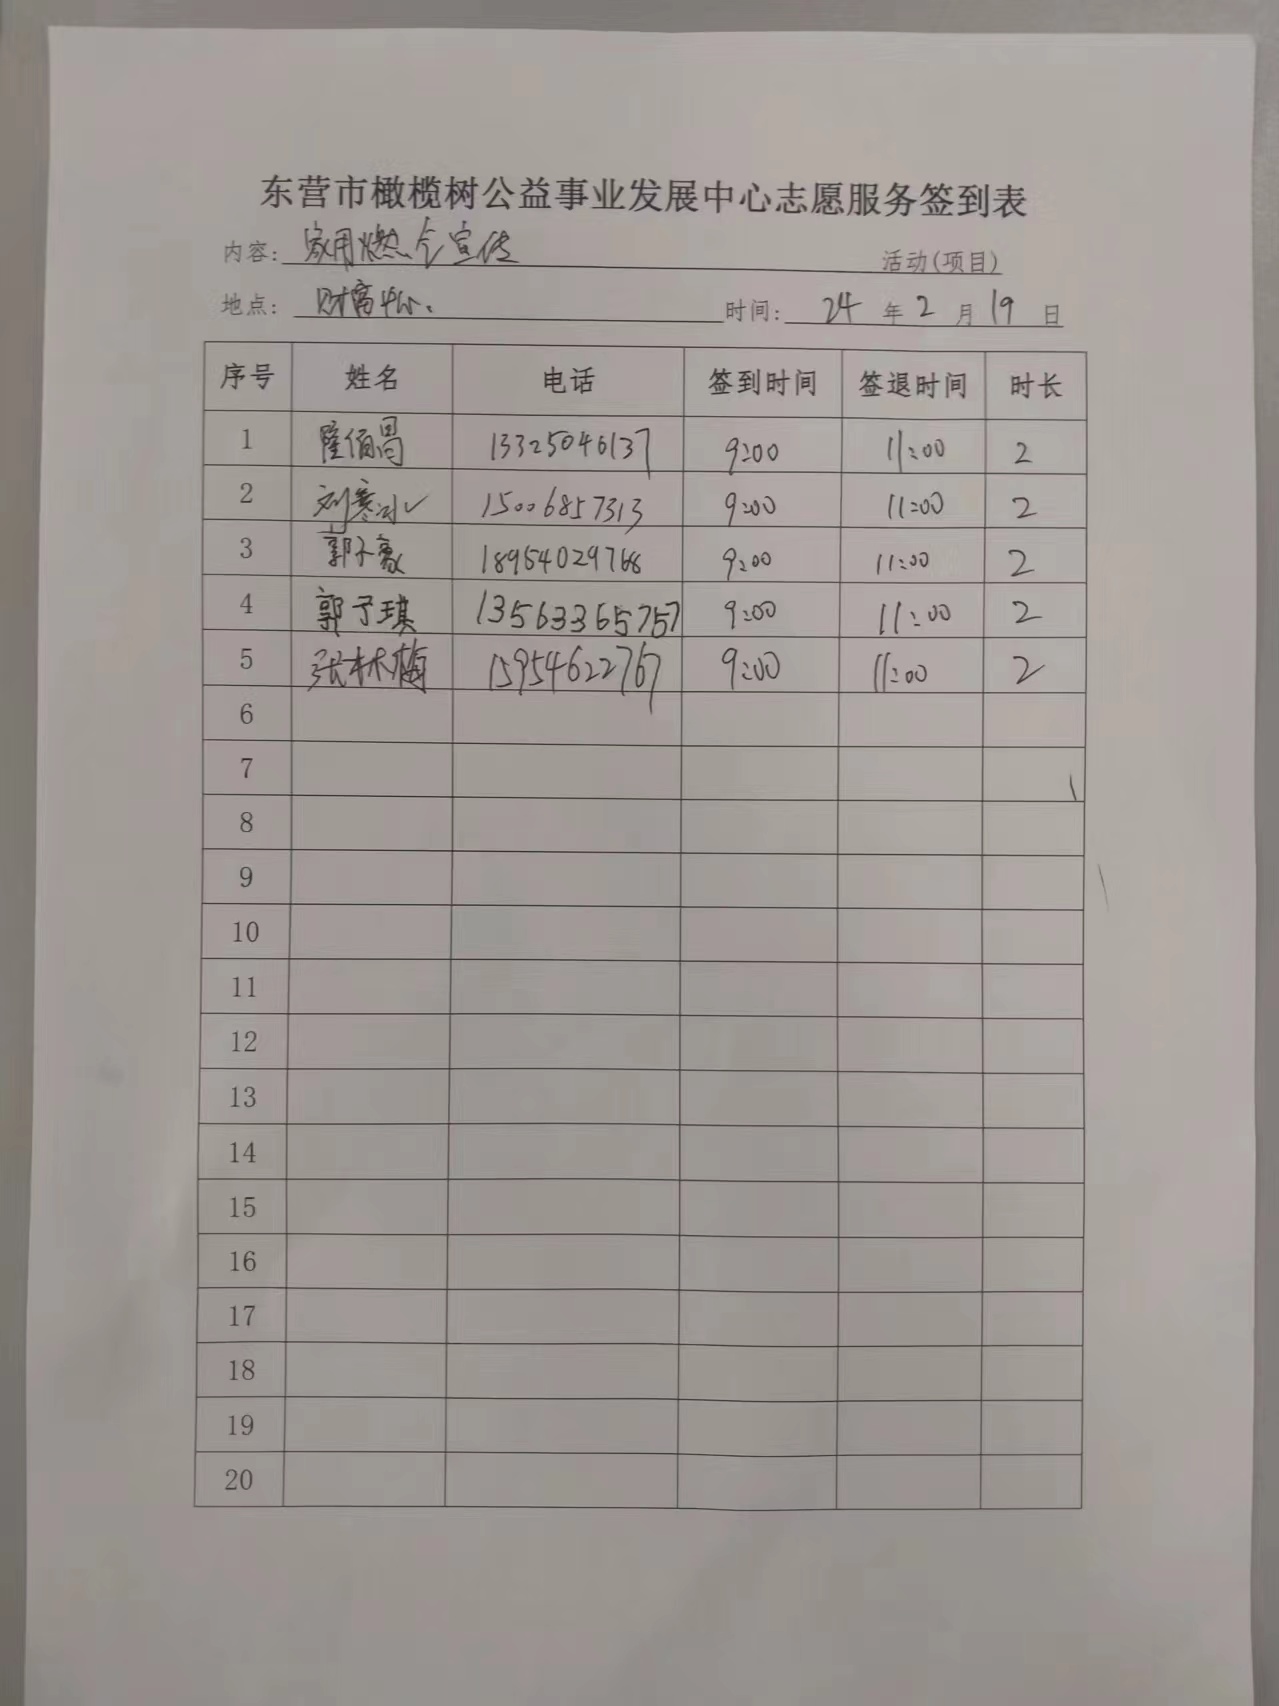 东营市橄榄树公益事业发展中心志愿服务签到表
内容: 家用燃气宣传 活动(项目)
地点: 财富中心. 时间: 24 年 2 月 19 日
序号 姓名 电话 签到时间 签退时间 时长
1 隆佰昌 13325046137 9:00 11:00 2
2 刘寒冰 15006857313 9:00 11:00 2
3 郭子豪 18954029768 9:00 11:00 2
4 郭子琪 13563365757 9:00 11:00 2
5 张林梅 15954622767 9:00 11:00 2
6
7
8
9
10
11
12
13
14
15
16
17
18
19
20